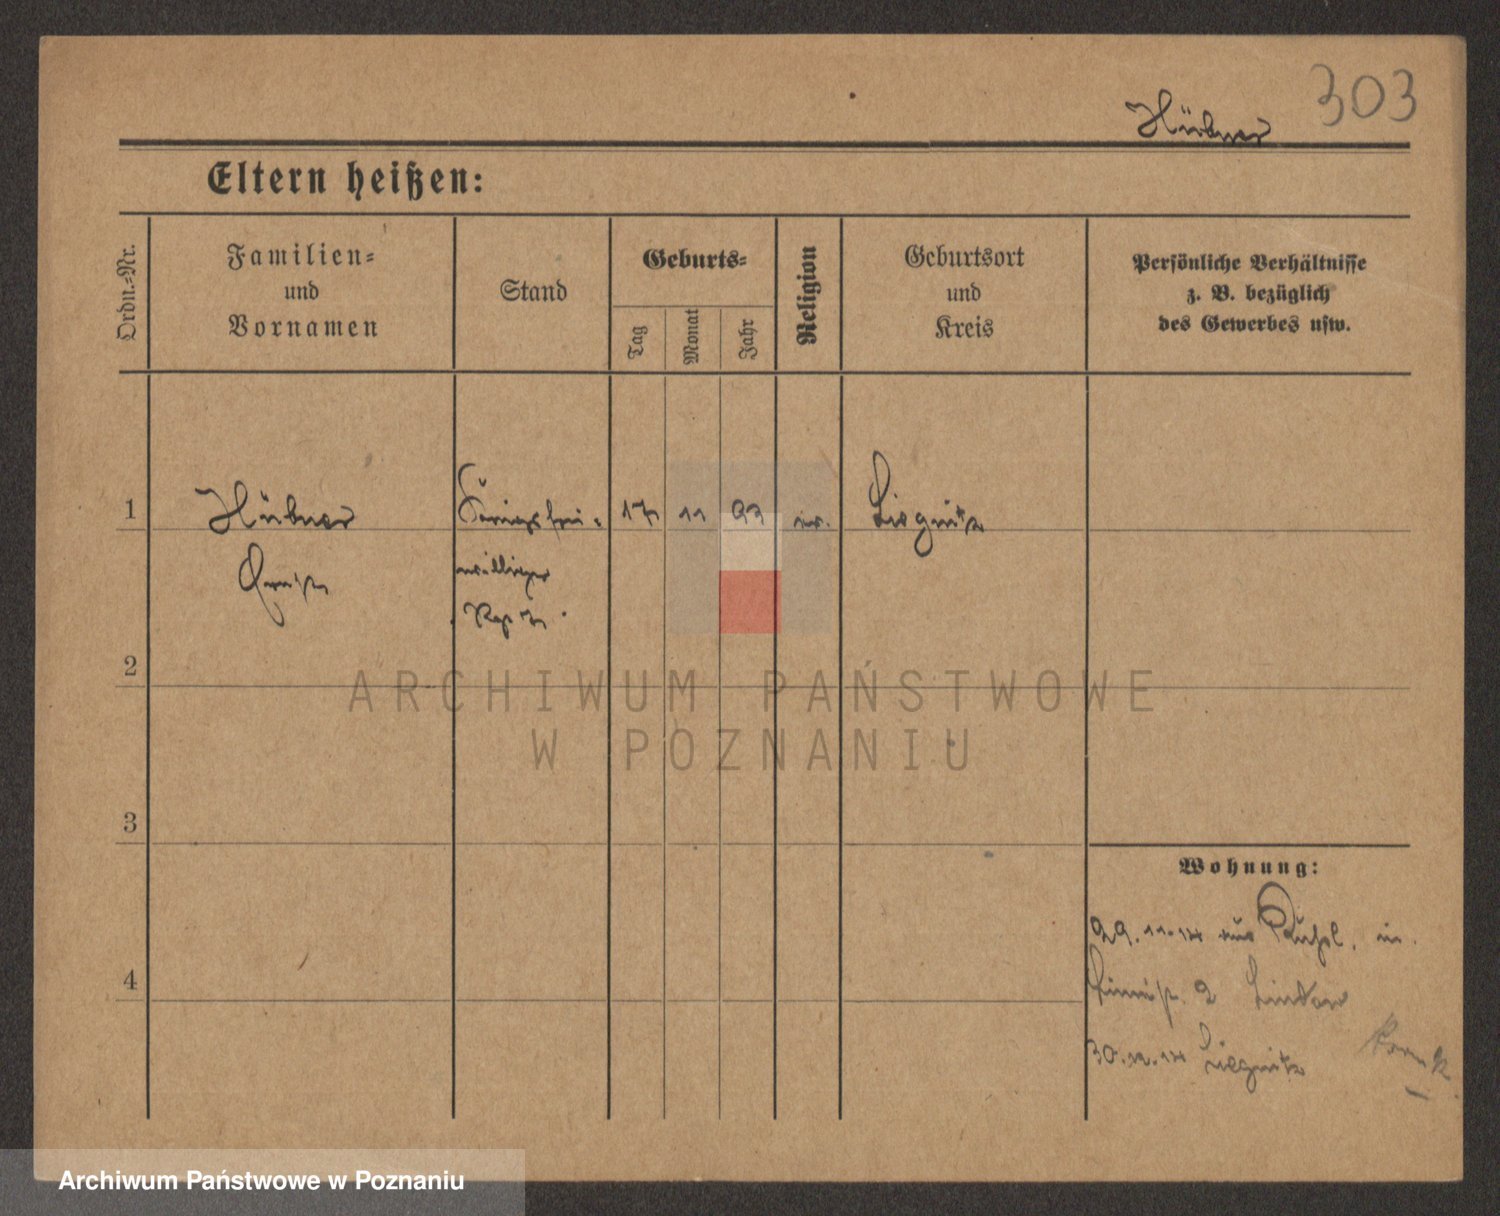 303
Hübner
Eltern heißen:
Ordn.-Nr.
Familien-
und
Vornamen
Stand
Geburts-
Tag
Monat
Jahr
Religion
Geburtsort
und
Kreis
Persönliche Verhältnisse
z. B. bezüglich
des Gewerbes usw.
1 Hübner Kriegsfrei- 17 11 93 ev. Liegnitz
williger
2
3
4
Wohnung:
29.11.14 aus
2 Lindow
30.12.14 Liegnitz
ARCHIWUM PAŃSTWOWE
W POZNANIU
Archiwum Państwowe w Poznaniu